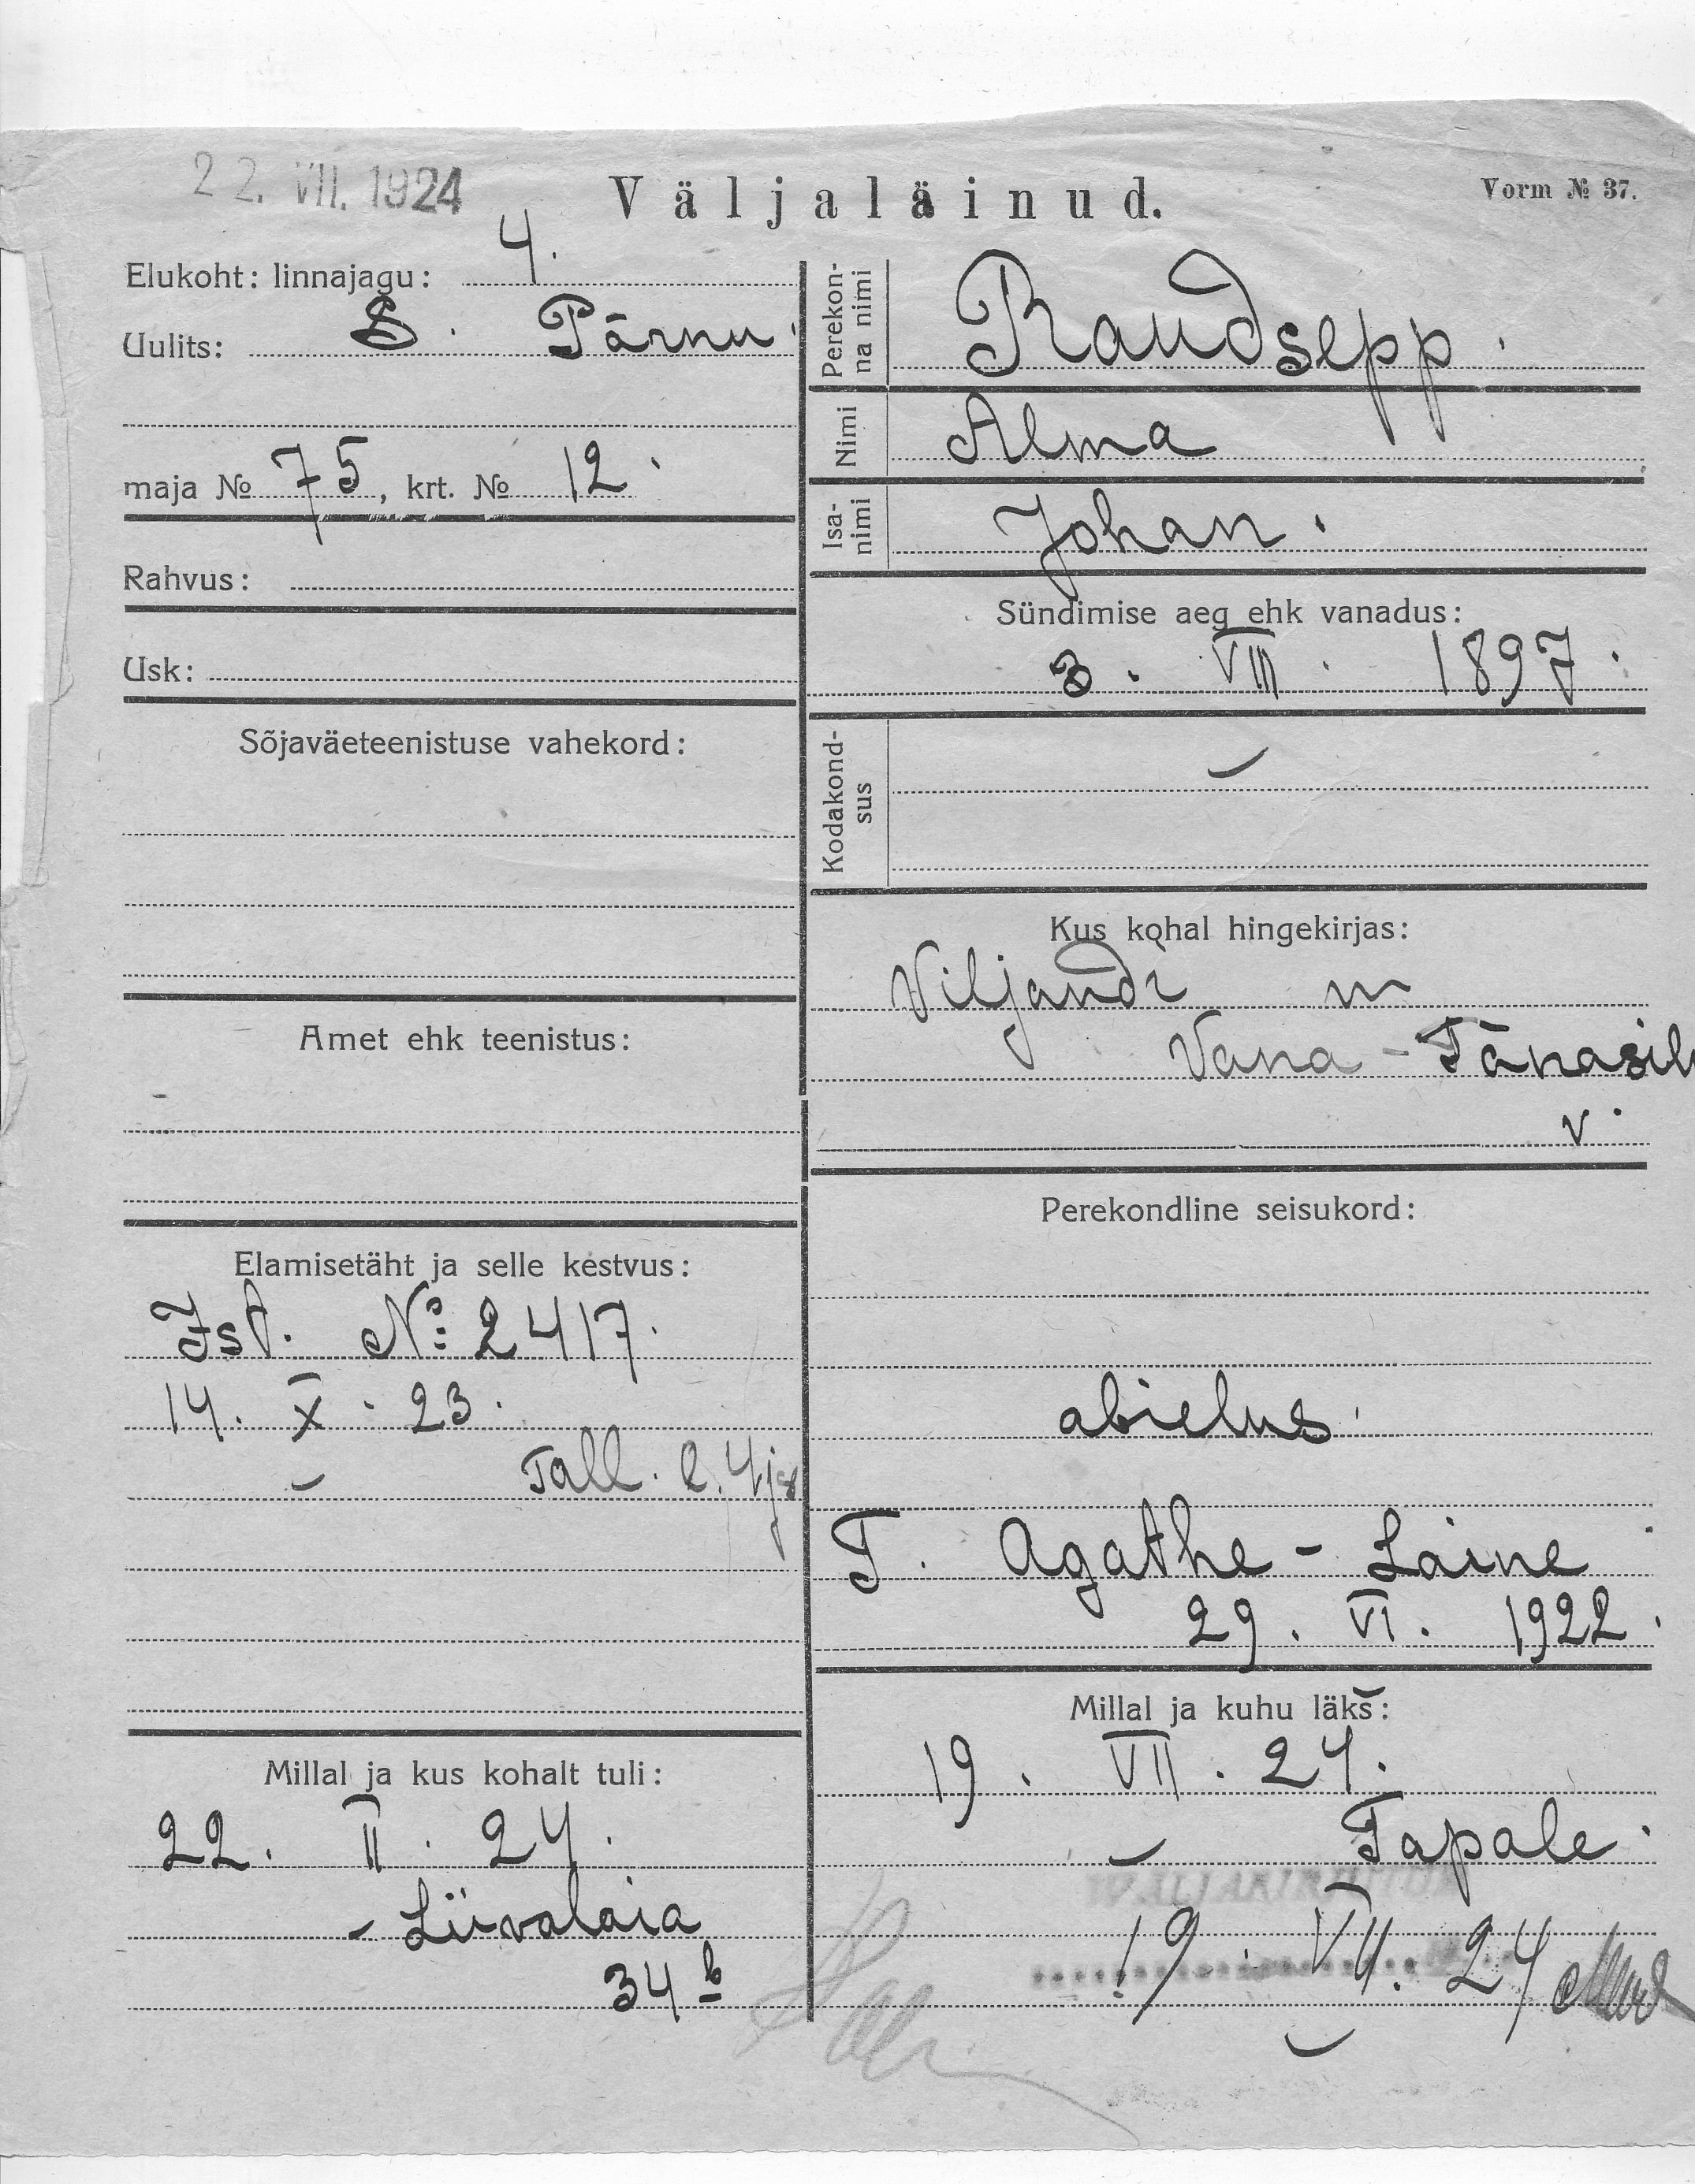 22. VII. 1924
Väljaläinud.
Vorm № 37.
Elukoht: linnajagu: 4.
Uulits: S. Pärnu.
maja № 75, krt. № 12.
Rahvus:
Usk:
Sõjaväeteenistuse vahekord:
Amet ehk teenistus:
Elamisetäht ja selle kestvus:
Ist. №: 2417.
14. X. 23.
Tall. l. 4 js
Millal ja kus kohalt tuli:
22. II. 24.
- Liivalaia
34 b
Perekon-
na nimi
Raudsepp.
Nimi
Alma
Isa-
nimi
Johan.
Sündimise aeg ehk vanadus:
3. VIII. 1897.
Kodakond-
sus
Kus kohal hingekirjas:
Viljandi m
Vana-Tänasilm
v.
Perekondline seisukord:
abielus.
T. Agathe-Laine
29. VI. 1922.
Millal ja kuhu läks:
19. VII. 24.
Tapale.
WÄLJAKIRJUTUD
19. VII. 24